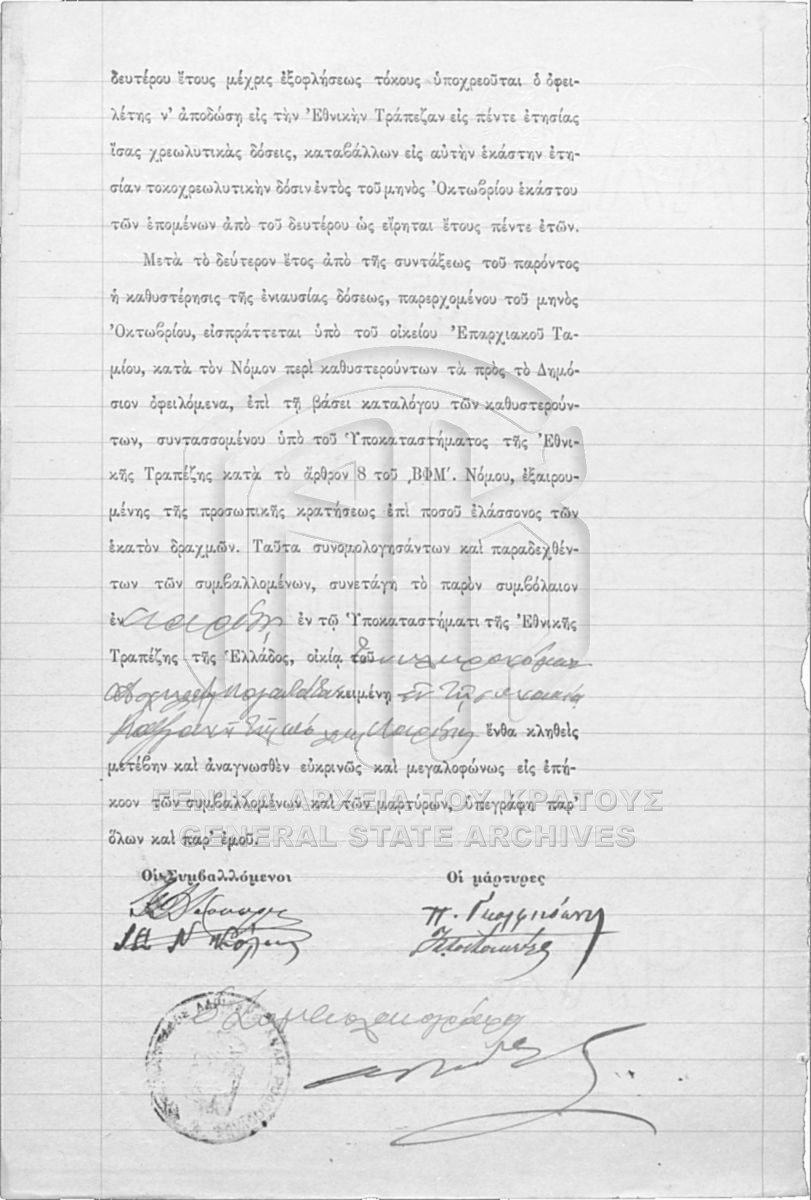 δευτέρου ἔτους μέχρις ἐξοφλήσεως τόκους ὑποχρεοῦται ὁ ὀφει-
λέτης ν' ἀποδώσῃ εἰς τὴν Ἐθνικὴν Τράπεζαν εἰς πέντε ἐτησίας
ἴσας χρεωλυτικὰς δόσεις, καταβάλλων εἰς αὐτὴν ἑκάστην ἐτη-
σίαν τοκοχρεωλυτικὴν δόσιν ἐντὸς τοῦ μηνὸς Ὀκτωβρίου ἑκάστου
τῶν ἑπομένων ἀπὸ τοῦ δευτέρου ὡς εἴρηται ἔτους πέντε ἐτῶν.
Μετὰ τὸ δεύτερον ἔτος ἀπὸ τῆς συντάξεως τοῦ παρόντος
ἡ καθυστέρησις τῆς ἐνιαυσίας δόσεως, παρερχομένου τοῦ μηνὸς
Ὀκτωβρίου, εἰσπράττεται ὑπὸ τοῦ οἰκείου Ἐπαρχιακοῦ Τα-
μίου, κατὰ τὸν Νόμον περὶ καθυστερούντων τὰ πρὸς τὸ Δημό-
σιον ὀφειλόμενα, ἐπὶ τῇ βάσει καταλόγου τῶν καθυστερούν-
των, συντασσομένου ὑπὸ τοῦ Ὑποκαταστήματος τῆς Ἐθνι-
κῆς Τραπέζης κατὰ τὸ ἄρθρον 8 τοῦ ͵ΒΦΜ΄. Νόμου, ἐξαιρου-
μένης τῆς προσωπικῆς κρατήσεως ἐπὶ ποσοῦ ἐλάσσονος τῶν
ἑκατὸν δραχμῶν. Ταῦτα συνομολογησάντων καὶ παραδεχθέν-
των τῶν συμβαλλομένων, συνετάγη τὸ παρὸν συμβόλαιον
ἐν Λαρίσῃ ἐν τῷ Ὑποκαταστήματι τῆς Ἐθνικῆς
Τραπέζης τῆς Ἑλλάδος, οἰκίᾳ τοῦ
κειμένῃ ἐν τῇ συνοικίᾳ
Λαρίσης ἔνθα κληθεὶς
μετέβην καὶ ἀναγνωσθὲν εὐκρινῶς καὶ μεγαλοφώνως εἰς ἐπή-
κοον τῶν συμβαλλομένων καὶ τῶν μαρτύρων, ὑπεγράφη παρ'
ὅλων καὶ παρ' ἐμοῦ.
ΓΕΝΙΚΑ ΑΡΧΕΙΑ ΤΟΥ ΚΡΑΤΟΥΣ
GENERAL STATE ARCHIVES
Οἱ Συμβαλλόμενοι Οἱ μάρτυρες
Ὁ Συμβολαιογράφος